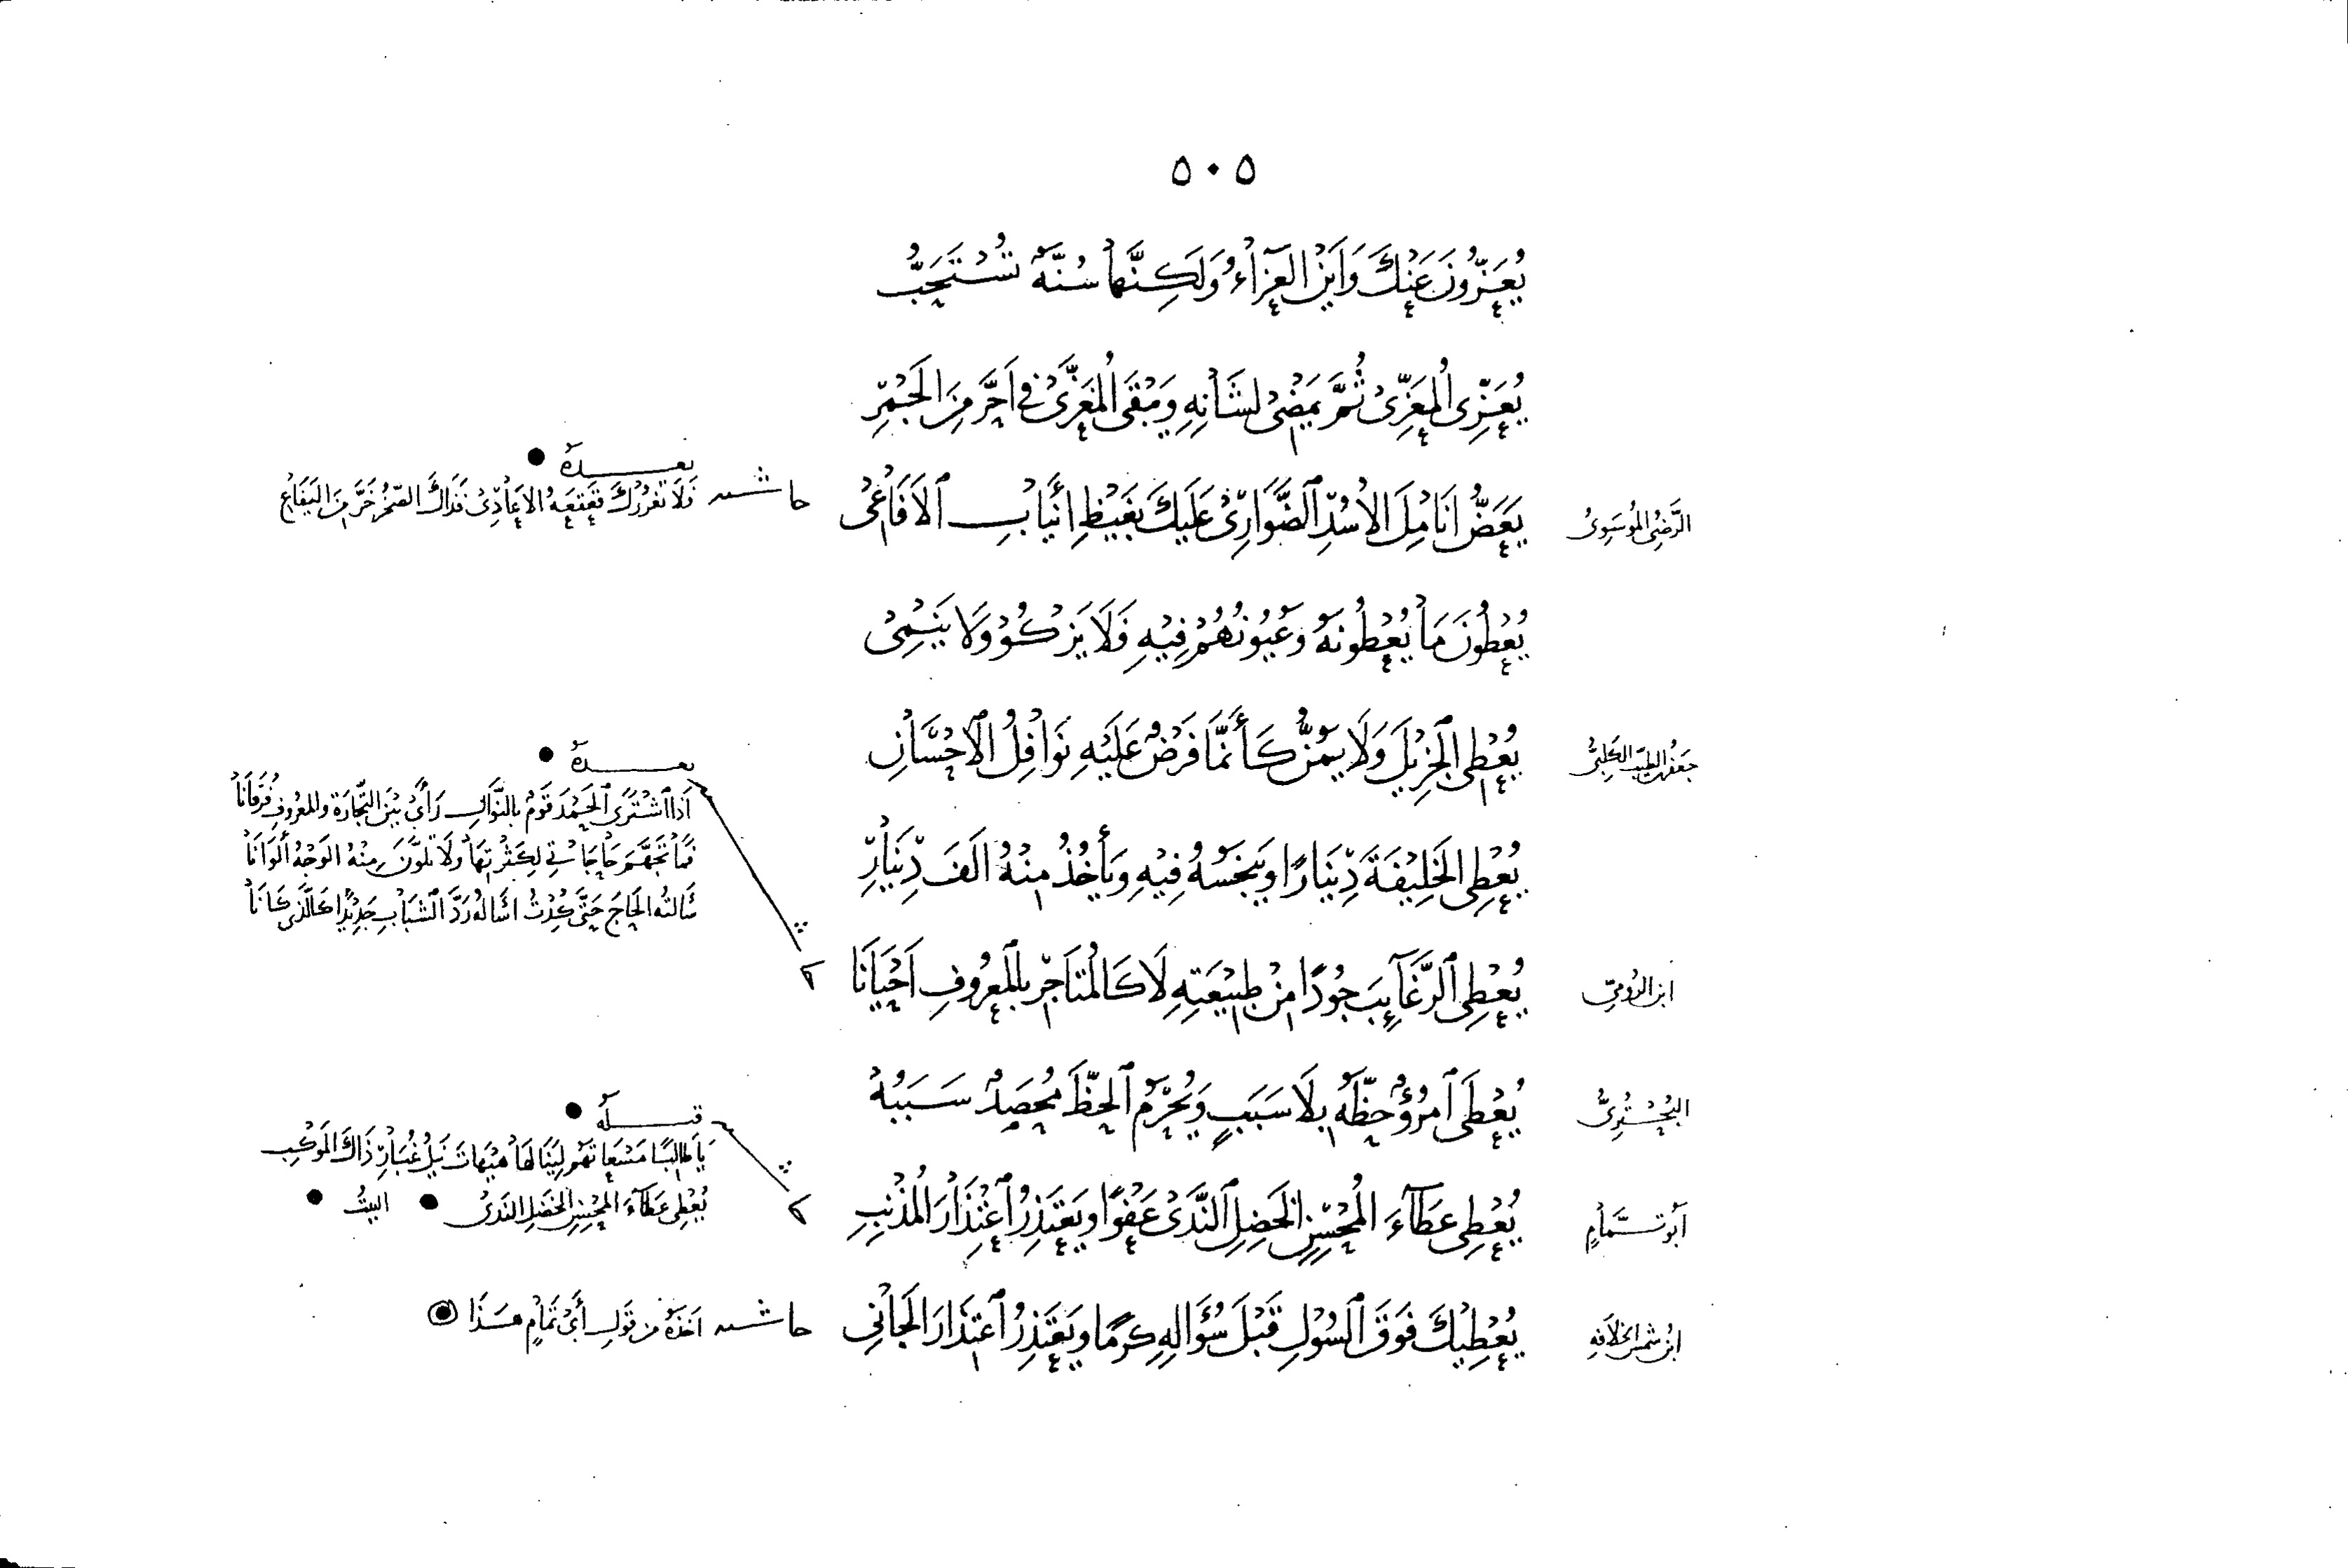 ٥٠٥
يُعَزُّونَ عَنْكَ وَأَيْنَ العَزَآءُ وَلَكِنَّهَا سُنَّةٌ تُسْتَحَبُّ
يُعَزِّى المُعَزِّىْ ثُمَّ يَمْضِىْ لِشَانِهِ وَيَبْقَى المُعَزَّىْ فِي اَحَرَّ مِنَ الجَمْرِ
الرَّضِىُّ المُوْسَوِىُّ
يَعَضُّ اَنَامِلَ الاُسْدِ الضَّوَارِىْ عَلَيْكَ بِغَيْظِ اَنْيَابِ الاَفَاعِىْ
حاشـه
بعــده
فَلَا تغررْكَ قَعْقَعَةُ الاَعَادِىْ فَذَاكَ الصَّخْرُ خَرَّ مِنَ اليَفَاعِ
يُعْطُونَ مَا يُعْطُونَهُ وَعُيُونُهُمْ فِيْهِ فَلَا يَزْكُوْ وَلَا يَنْمِىْ
جَعْفَرُ الطيّب الكَلْبِىُّ
يُعْطِى الجَزِيْلَ وَلَا يَمُنُّ كَأَنَّمَا فَرْضٌ عَلَيْهِ نَوَافِلُ الاِحْسَانِ
يُعْطِى الخَلِيْفَةَ دِيْنَارًا وَيَبْخَسُهُ فِيْهِ وَيَأْخُذُ مِنْهُ الَفَ دِيْنَارِ
ابن الرُّومِىِّ
يُعْطِى الرَّغَآئِبَ جُوْدًا مِنْ طَبِيْعَتِهِ لَا كَالمُتَاجِرِ بِالمَعْرُوفِ اَحْيَانَا
بعــده
اذَا اشْتَرَى الحَمْدَ قَوْمٌ بِالنَّوَالِ رَأَىْ بَيْنَ التِّجَارَةِ وَالمَعْرُوفِ فُرْقَانَا
فَمَا تَجَهَّمَ حَاجَاتِي لِكَثْرَتِهَا وَلَا تَلَوَّنَ مِنْهُ الوَجْهُ أَلْوَانَا
سَالتُه الحَاجَ حَتَّى كِدْتُ اَسْالُهُ رَدَّ الشَّبَابِ جَدِيْدًا كَالَّذِى كَانَا
البُحْتُرِىُّ
يُعْطَى امْرُؤٌ حَظَّهُ بِلَا سَبَبٍ وَيُحْرَمُ الحَظَّ مُحْصَدٌ سَبَبُهْ
أبُو تَمَّامٍ
يُعْطِى عَطَآءَ المُحْسِنِ الخَضِلِ النَّدَىْ عَفْوًا وَيَعْتَذِرُ اعْتِذَارَ المُذْنِبِ
قبــله
يَا طَالِبًا مَسْعَاتَهُمْ لِيَنَالَهَا هَيْهَاتَ نَيْلُ غُبَارِ ذَاكَ المَوْكِبِ
يُعْطِى عَطَآءَ المُحْسِنِ الخَضِلِ النَّدَىْ البيتُ
ابْنُ شَمْسِ الخلَافَةِ
يُعْطِيْكَ فَوْقَ السُوْلِ قَبْلَ سُؤَالِهِ كَرَمًا وَيَعْتَذِرُ اعْتِذَارَ الجَانِى
حاشـه اَخَذَهُ من قَوْلِ أَبِىْ تَمَّامٍ هَذَا